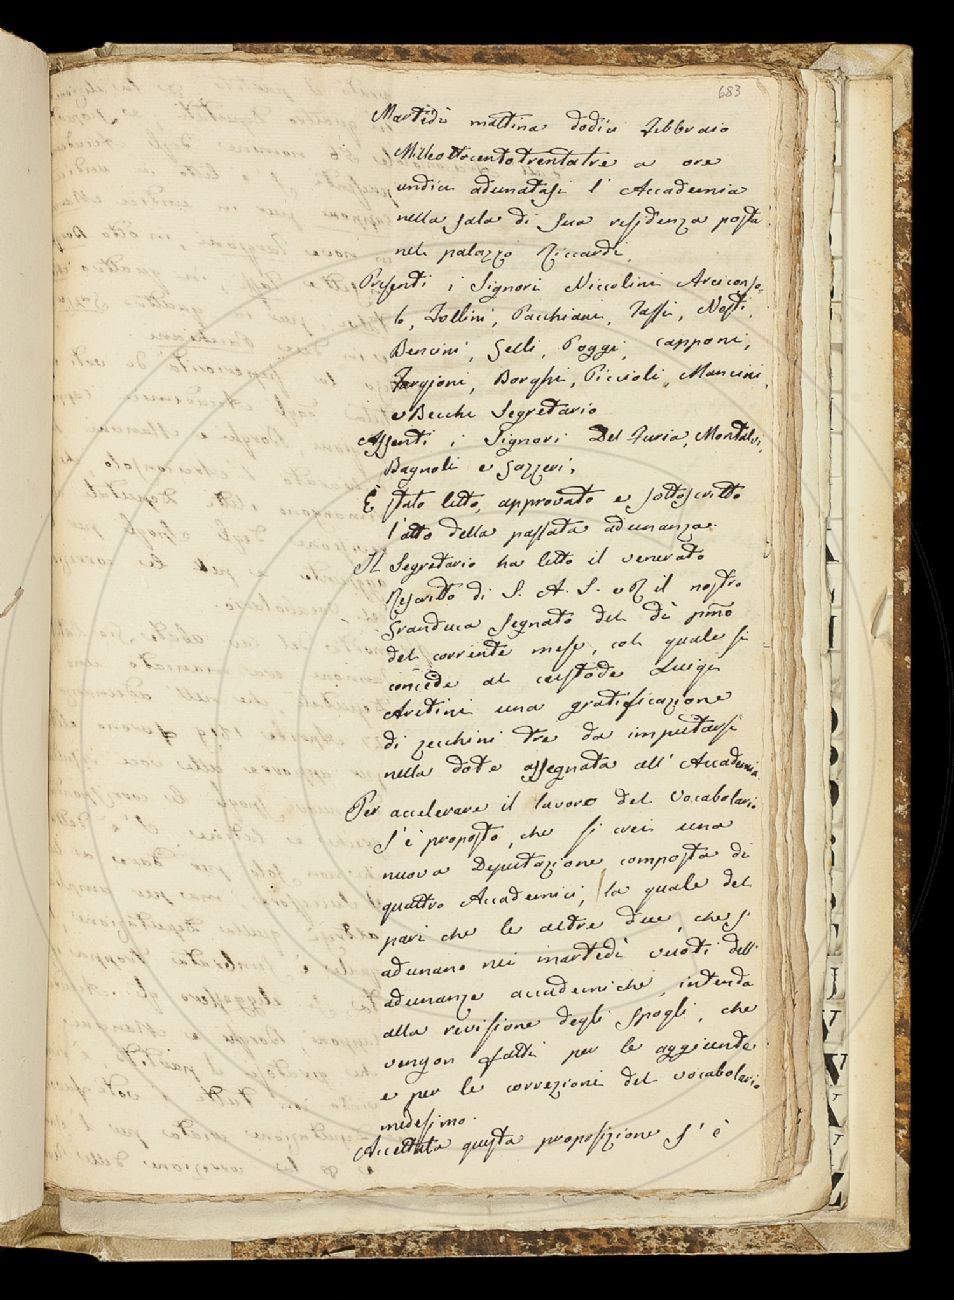 683
Martedì mattina dodici Febbraio
Milleottocentotrentatre a ore
undici adunatasi l'Accademia
nella sala di sua residenza posta
nel palazzo Riccardi.
Presenti i Signori Niccolini Arciconso-
lo, Follini, Pacchiani, Tassi, Nesti,
Bencini, Gelli, Poggi, Capponi,
Targioni, Borghi, Piccioli, Mancini,
e Becchi Segretario
Assenti i Signori Del Furia, Montalvi,
Bagnoli e Gazzeri,
È stato letto, approvato e sottoscritto
l'atto della passata adunanza.
Il Segretario ha letto il venerato
Rescritto di S. A. I. e R il nostro
Granduca segnato del dì pmo
del corrente mese, col quale si
concede al custode Luigi
Aretini una gratificazione
di zecchini tre da imputarsi
nella dote assegnata all'Accademia
Per accelerare il lavoro del vocabolario
s'è proposto, che si crei una
nuova Deputazione composta di
quattro Accademici, la quale del
pari che le altre due, che s'
adunano nei martedì vuoti dell'
adunanze accademiche, intenda
alla revisione degli spogli, che
vengon fatti per le aggiunte
e per le correzioni del vocabolario
medesimo.
Accettata questa proposizione s'è